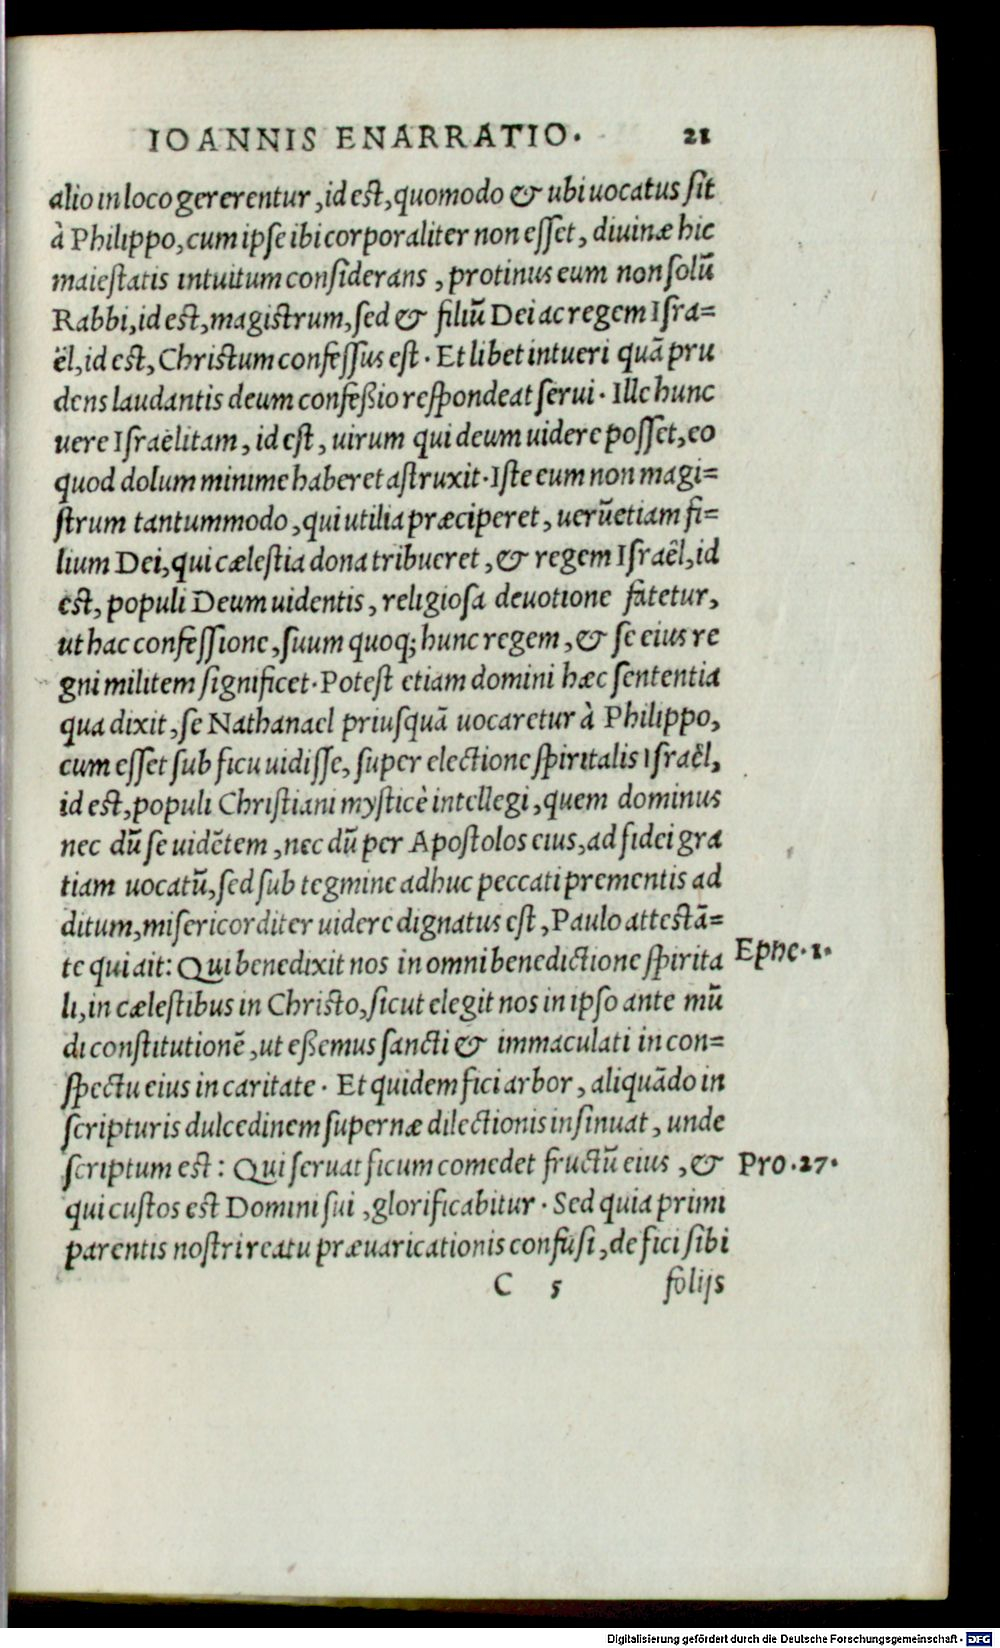 IOANNIS ENARRATIO. 21
alio in loco gererentur, id est, quomodo & ubi uocatus sit
à Philippo, cum ipse ibi corporaliter non esset, diuinæ hic
maiestatis intuitum considerans, protinus eum non solū
Rabbi, id est, magistrum, sed & filiū Dei ac regem Isra=
ël, id est, Christum confessus est. Et libet intueri quā pru
dens laudantis deum confeßio respondeat serui. Ille hunc
uere Israëlitam, id est, uirum qui deum uidere posset, eo
quod dolum minime haberet astruxit. Iste eum non magi=
strum tantummodo, qui utilia præciperet, uerūetiam fi=
lium Dei, qui cælestia dona tribueret, & regem Israël, id
est, populi Deum uidentis, religiosa deuotione fatetur,
ut hac confessione, suum quoq; hunc regem, & se eius re
gni militem significet. Potest etiam domini hæc sententia
qua dixit, se Nathanael priusquā uocaretur à Philippo,
cum esset sub ficu uidisse, super electione spiritalis Israël,
id est, populi Christiani mysticè intellegi, quem dominus
nec dū se uidētem, nec dū per Apostolos eius, ad fidei gra
tiam uocatū, sed sub tegmine adhuc peccati prementis ad
ditum, misericorditer uidere dignatus est, Paulo attestā=
te qui ait: Qui benedixit nos in omni benedictione spirita Ephe. 1.
li, in cælestibus in Christo, sicut elegit nos in ipso ante mū
di constitutionē, ut eßemus sancti & immaculati in con=
spectu eius in caritate. Et quidem fici arbor, aliquādo in
scripturis dulcedinem supernæ dilectionis insinuat, unde
scriptum est: Qui seruat ficum comedet fructū eius, & Pro. 27.
qui custos est Domini sui, glorificabitur. Sed quia primi
parentis nostri reatu præuaricationis confusi, de fici sibi
C 5 folijs
Digitalisierung gefördert durch die Deutsche Forschungsgemeinschaft - DFG